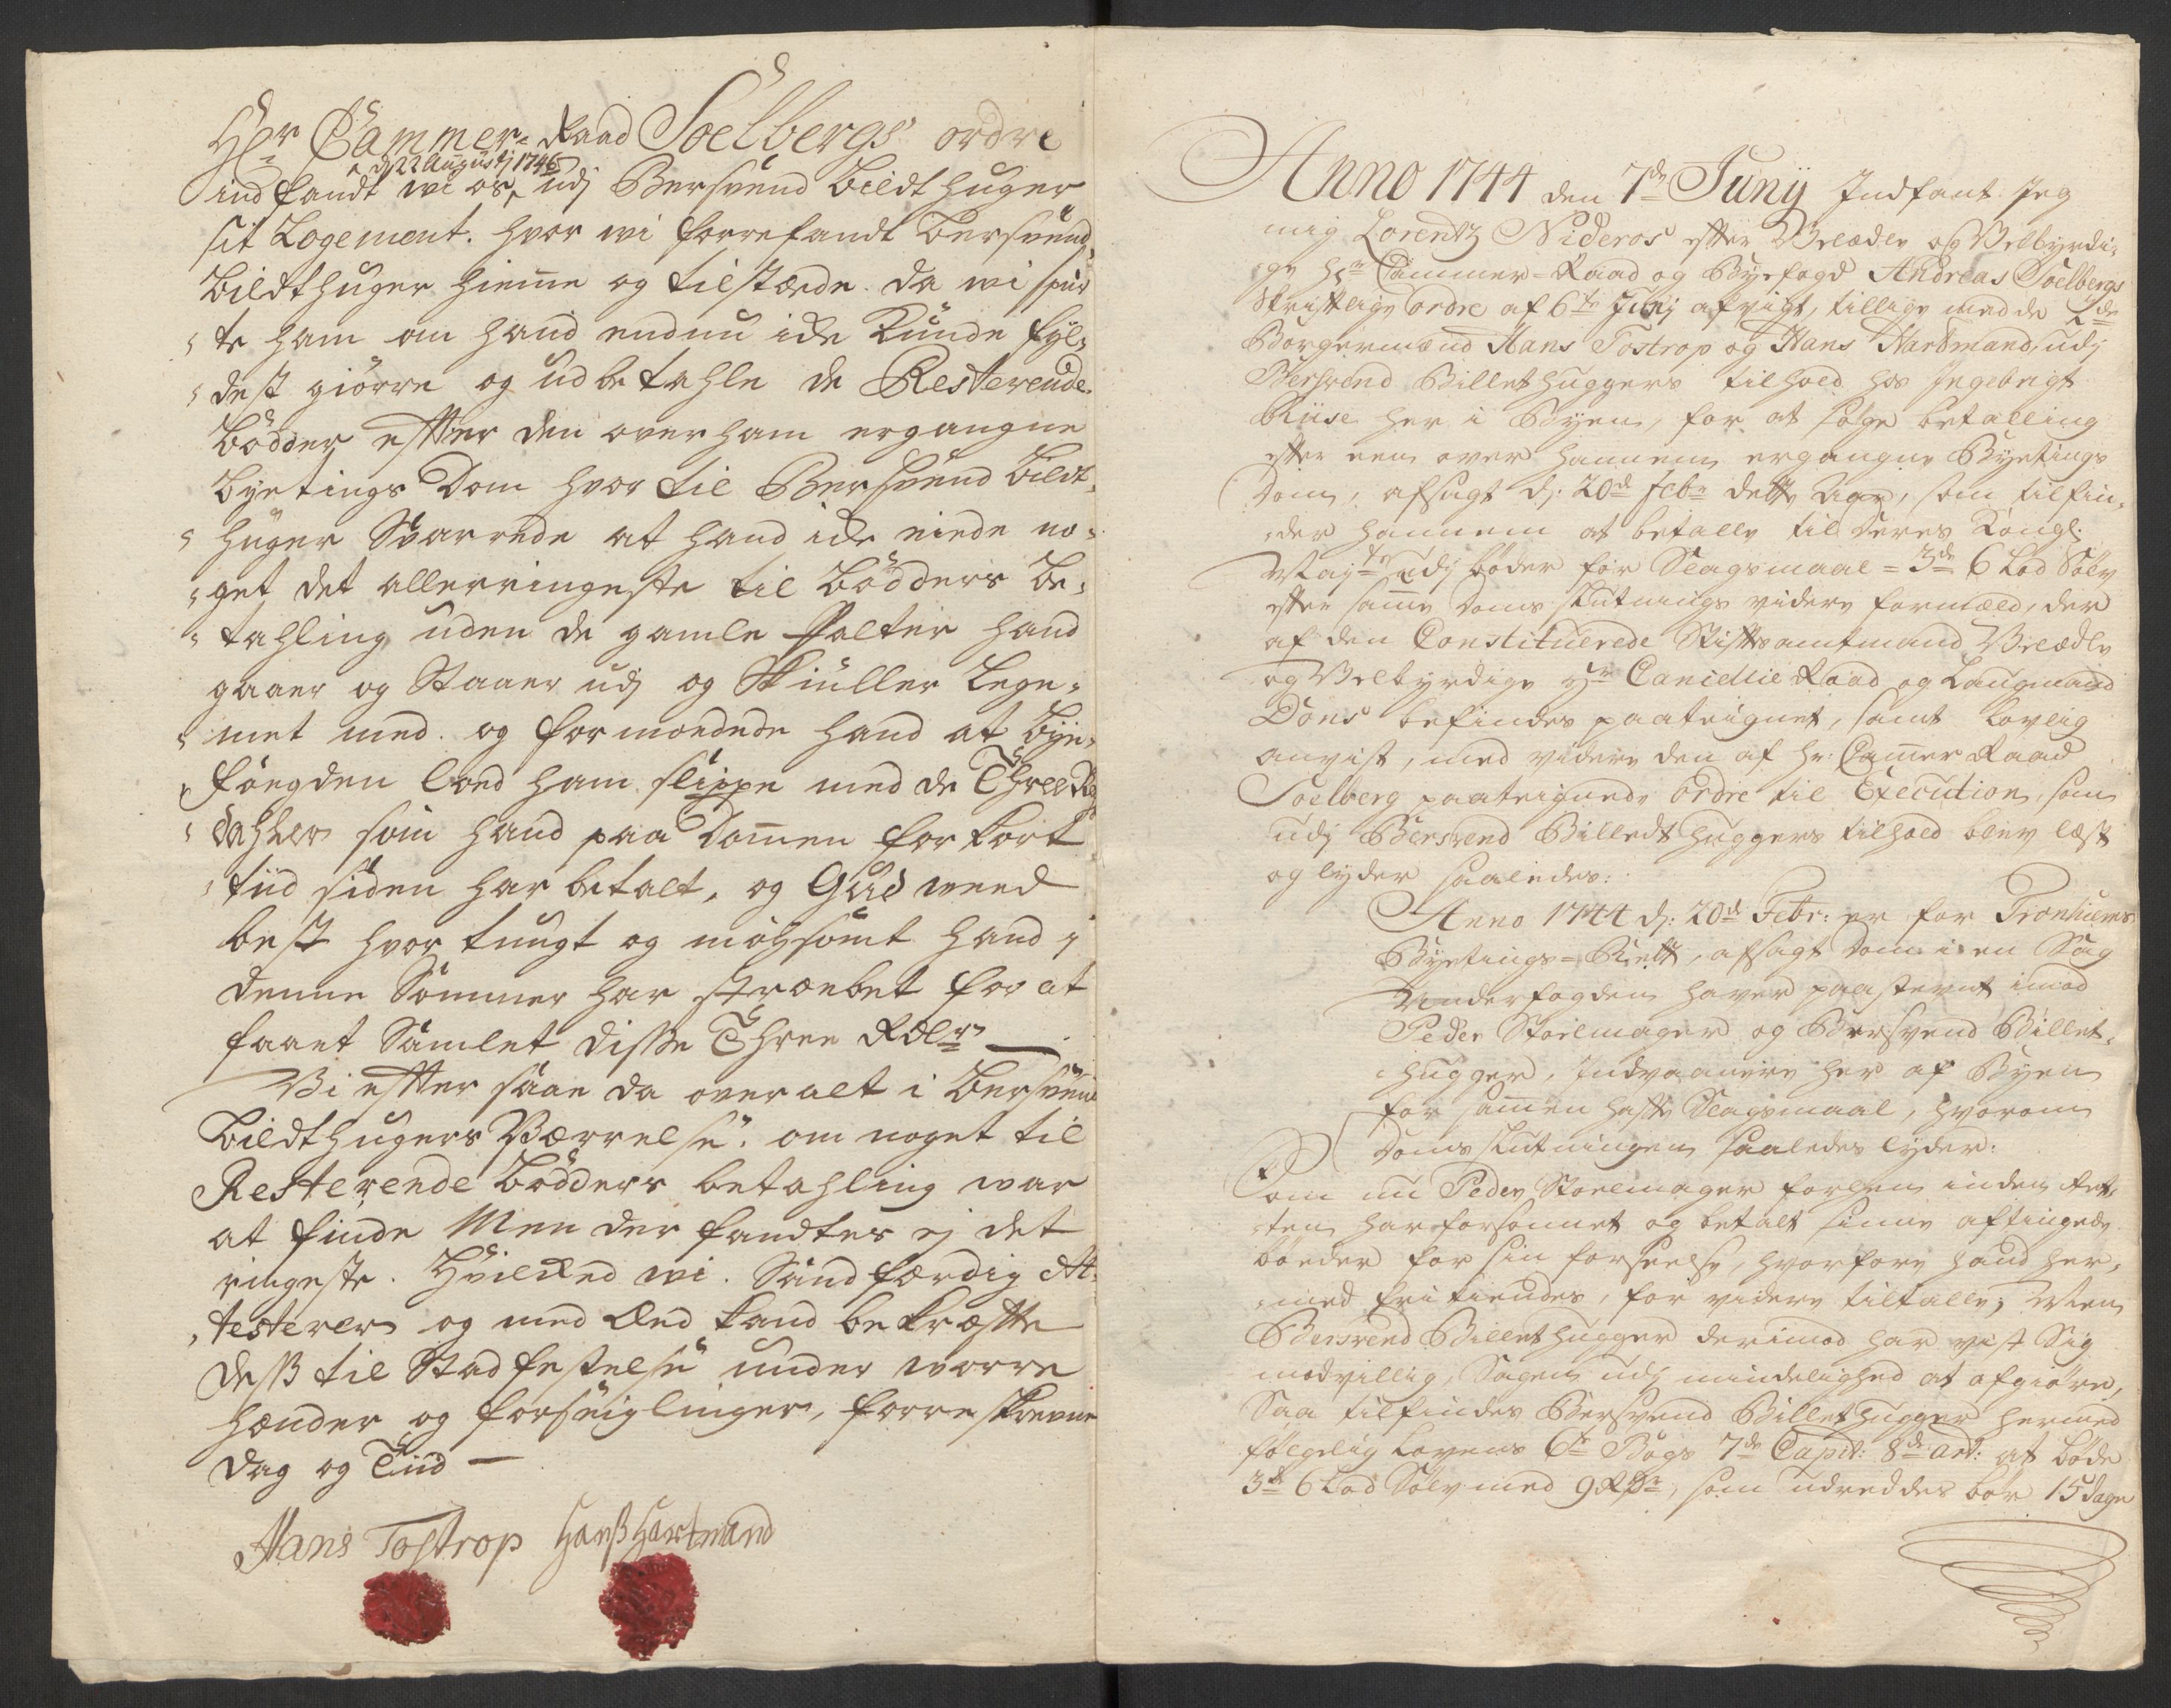 Hr Cammer-Raad Soelbergs ordre
d 22 Augustj 1746
indfandt wi os, udj Bersvend Bildthuger
sit Logement. hvor wi forrefandt Bersvend
Bildthuger hieme og tilstæde. da wi spur
te ham om hand endnu icke kunde fyl-
dest giörre og udbetahle de Resterende
Bödder efter den over ham ergangne
Byetings Dom hvor til Bersvend Bildt-
huger Svarrede at hand icke eiede no-
get det allerringeste til Bödders be-
tahling uden de gamle Palter hand
gaaer og Staaer udj og Skiuller Lege-
met med. og formoedede hand at Bye-
foegden loed ham slippe med de Three Rix
dahler som hand paa Domen for kort
tiid siden har betalt, og Gud weed
best hvor tungt og möysomt hand i
denne Sommer har stræbet for at
faaet Samlet disse Three Rdlr
Vi efter saae da over alt i Bersvend
Bildthugers Værrelse. om noget til
Resterende Bödders betahling war
at finde Men der fandtes ej det
ringeste. Hvilked wi. Sandfærdig At-
testerer og med Eed kand bekræfte
dess til Stadfestelse under worre
hænder og forseiglinger, forreskrevne
Dag og Tiid
Hans Tostrop Hanß Hartmand
Anno 1744 den 7de Junij Indfant Jeg
mig Lorentz Nideros efter Velædle og Velbyrdi-
ge Hr Cammer-Raad og Byefogd Andreas Soelbergs
skriftlige ordre af 6te Junij afvigt, tillige med de 2de
Borgermænd Hans Tostrop og Hans Hartmand, udj
Bersvend Billethuggers tilhold hos Ingebrigt
Riise her i Byen, for at söge betalling
efter een over hannem ergangne Byetings
Dom, afsagt d: 20de febr dette Aar, som tilfin-
der hannem at betalle til Deres Kongl.
Mayts udj böder for Slagsmaal = 3de 6 Lod Sölv
efter samme Doms slutnings videre formeld, der
af den Constituerede Stiftsamtmand Velædle
og Velbyrdige Hr Cancellie Raad og Laugmand
Dons befindes paateignet, samt lovlig
anvist, med videre den af Hr. Camer Raad
Soelberg paateignede ordre til Execution, som
udj Bersvend Billedthuggers tilhold blev læst
og lyder saaledes:
Anno 1744 d: 20de Febr: er for Tronhiems
Byetings-Rett, afsagt Dom i en Sag
Underfogden haver paastevnt imod
Peder Stoelmager og Bersvend Billet-
hugger, Indvaanere her af Byen
for sammen hafte Slagsmaal, hvorom
Doms slutningen saaledes lyder:
Som nu Peder Stoelmager forhen inden Ret-
ten har forsonnet og betalt sinne aftingede
böeder for sin forseelse, hvorfore hand her-
med fritiendes, for videre tiltalle; Men
Bersvend Billethugger derimod har vist Sig
modvillig, Sagen udj mindelighed at afgiöre,
Saa tilfindes Bersvend Billethugger hermed
fölgelig Lovens 6te Bogs 7de Capit: 8de art: at böde
3de 6 Lod Sölv med 9 Rdr, som udreddes bör 15 dage